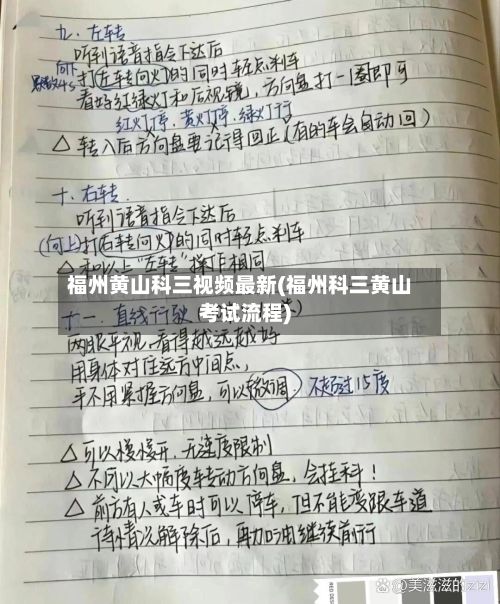 九、左转
听到语音指令下达后
向下
打左车转向灯的同时轻点刹车
看好红绿灯和后视镜，方向盘打一圈即可
红灯停，黄灯停，绿灯行
△ 转入后方向盘要记得回正（有的车会自动回）
十、右转
听到语音指令下达后
(向上)打右转向灯的同时轻点刹车
△ 和以上"左转"操作相同
福州黄山科三视频最新(福州科三黄山
考试流程)
十一、直线行驶
两眼平视，看得越远越好
用身体对住远方中间点，
手不用紧握方向盘，可以微调，不超过15度
△ 可以慢慢开，无速度限制
△ 不可以大幅度转动方向盘，会挂科！
△ 前方有人或车时可以停车，但不能变跟车道
待情况解除后，再加油继续前行
@美滋滋的zizi